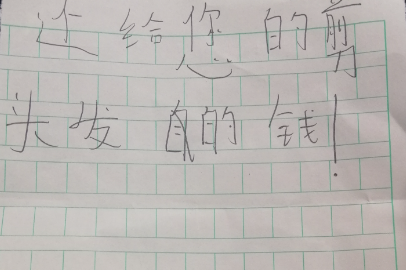 还给您的剪
头发的钱!